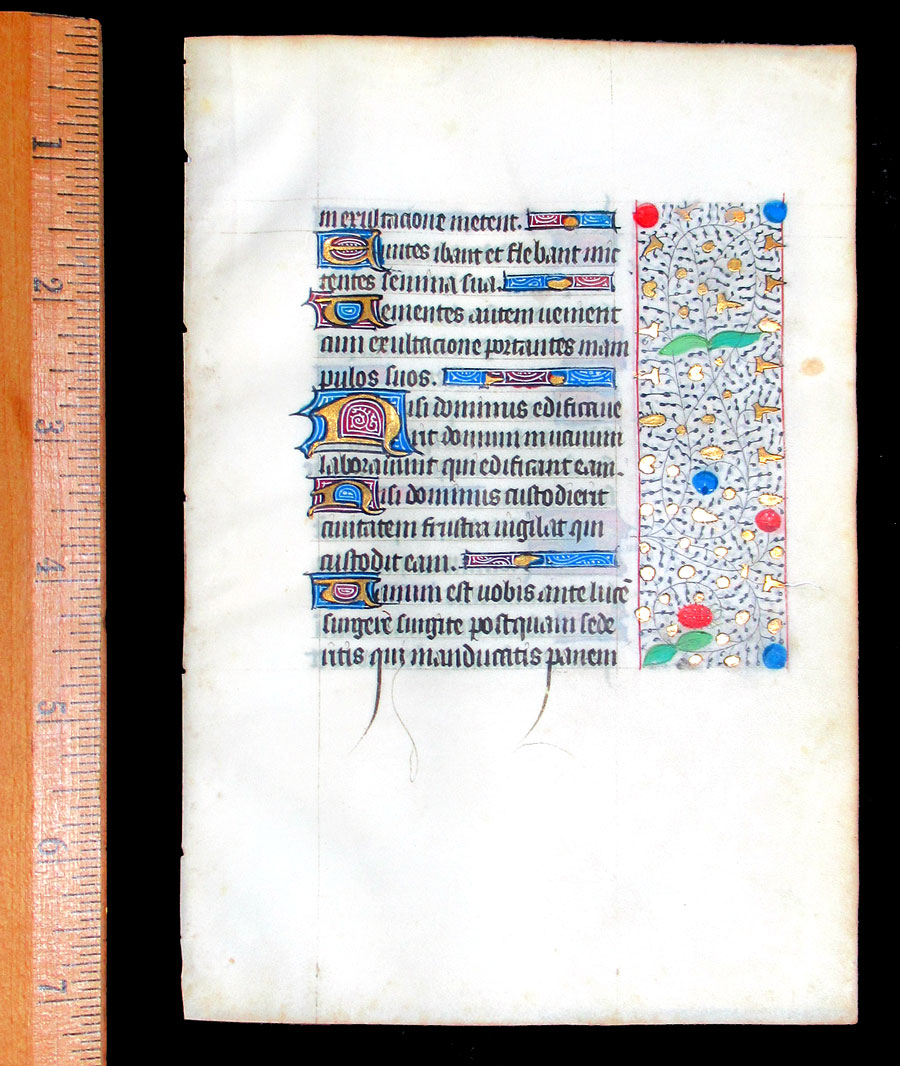 in exultacione metent.
Euntes ibant et flebant mit
tentes semina sua.
Uenientes autem uenient
cum exultacione portantes mani
pulos suos.
Nisi dominus edificaue
rit domum in uanum
laborauerunt qui edificant eam.
Nisi dominus custodierit
ciuitatem frustra uigilat qui
custodit eam.
Uanum est uobis ante lucē
surgere surgite postquam sede
ritis qui manducatis panem
1
2
3
4
5
6
7